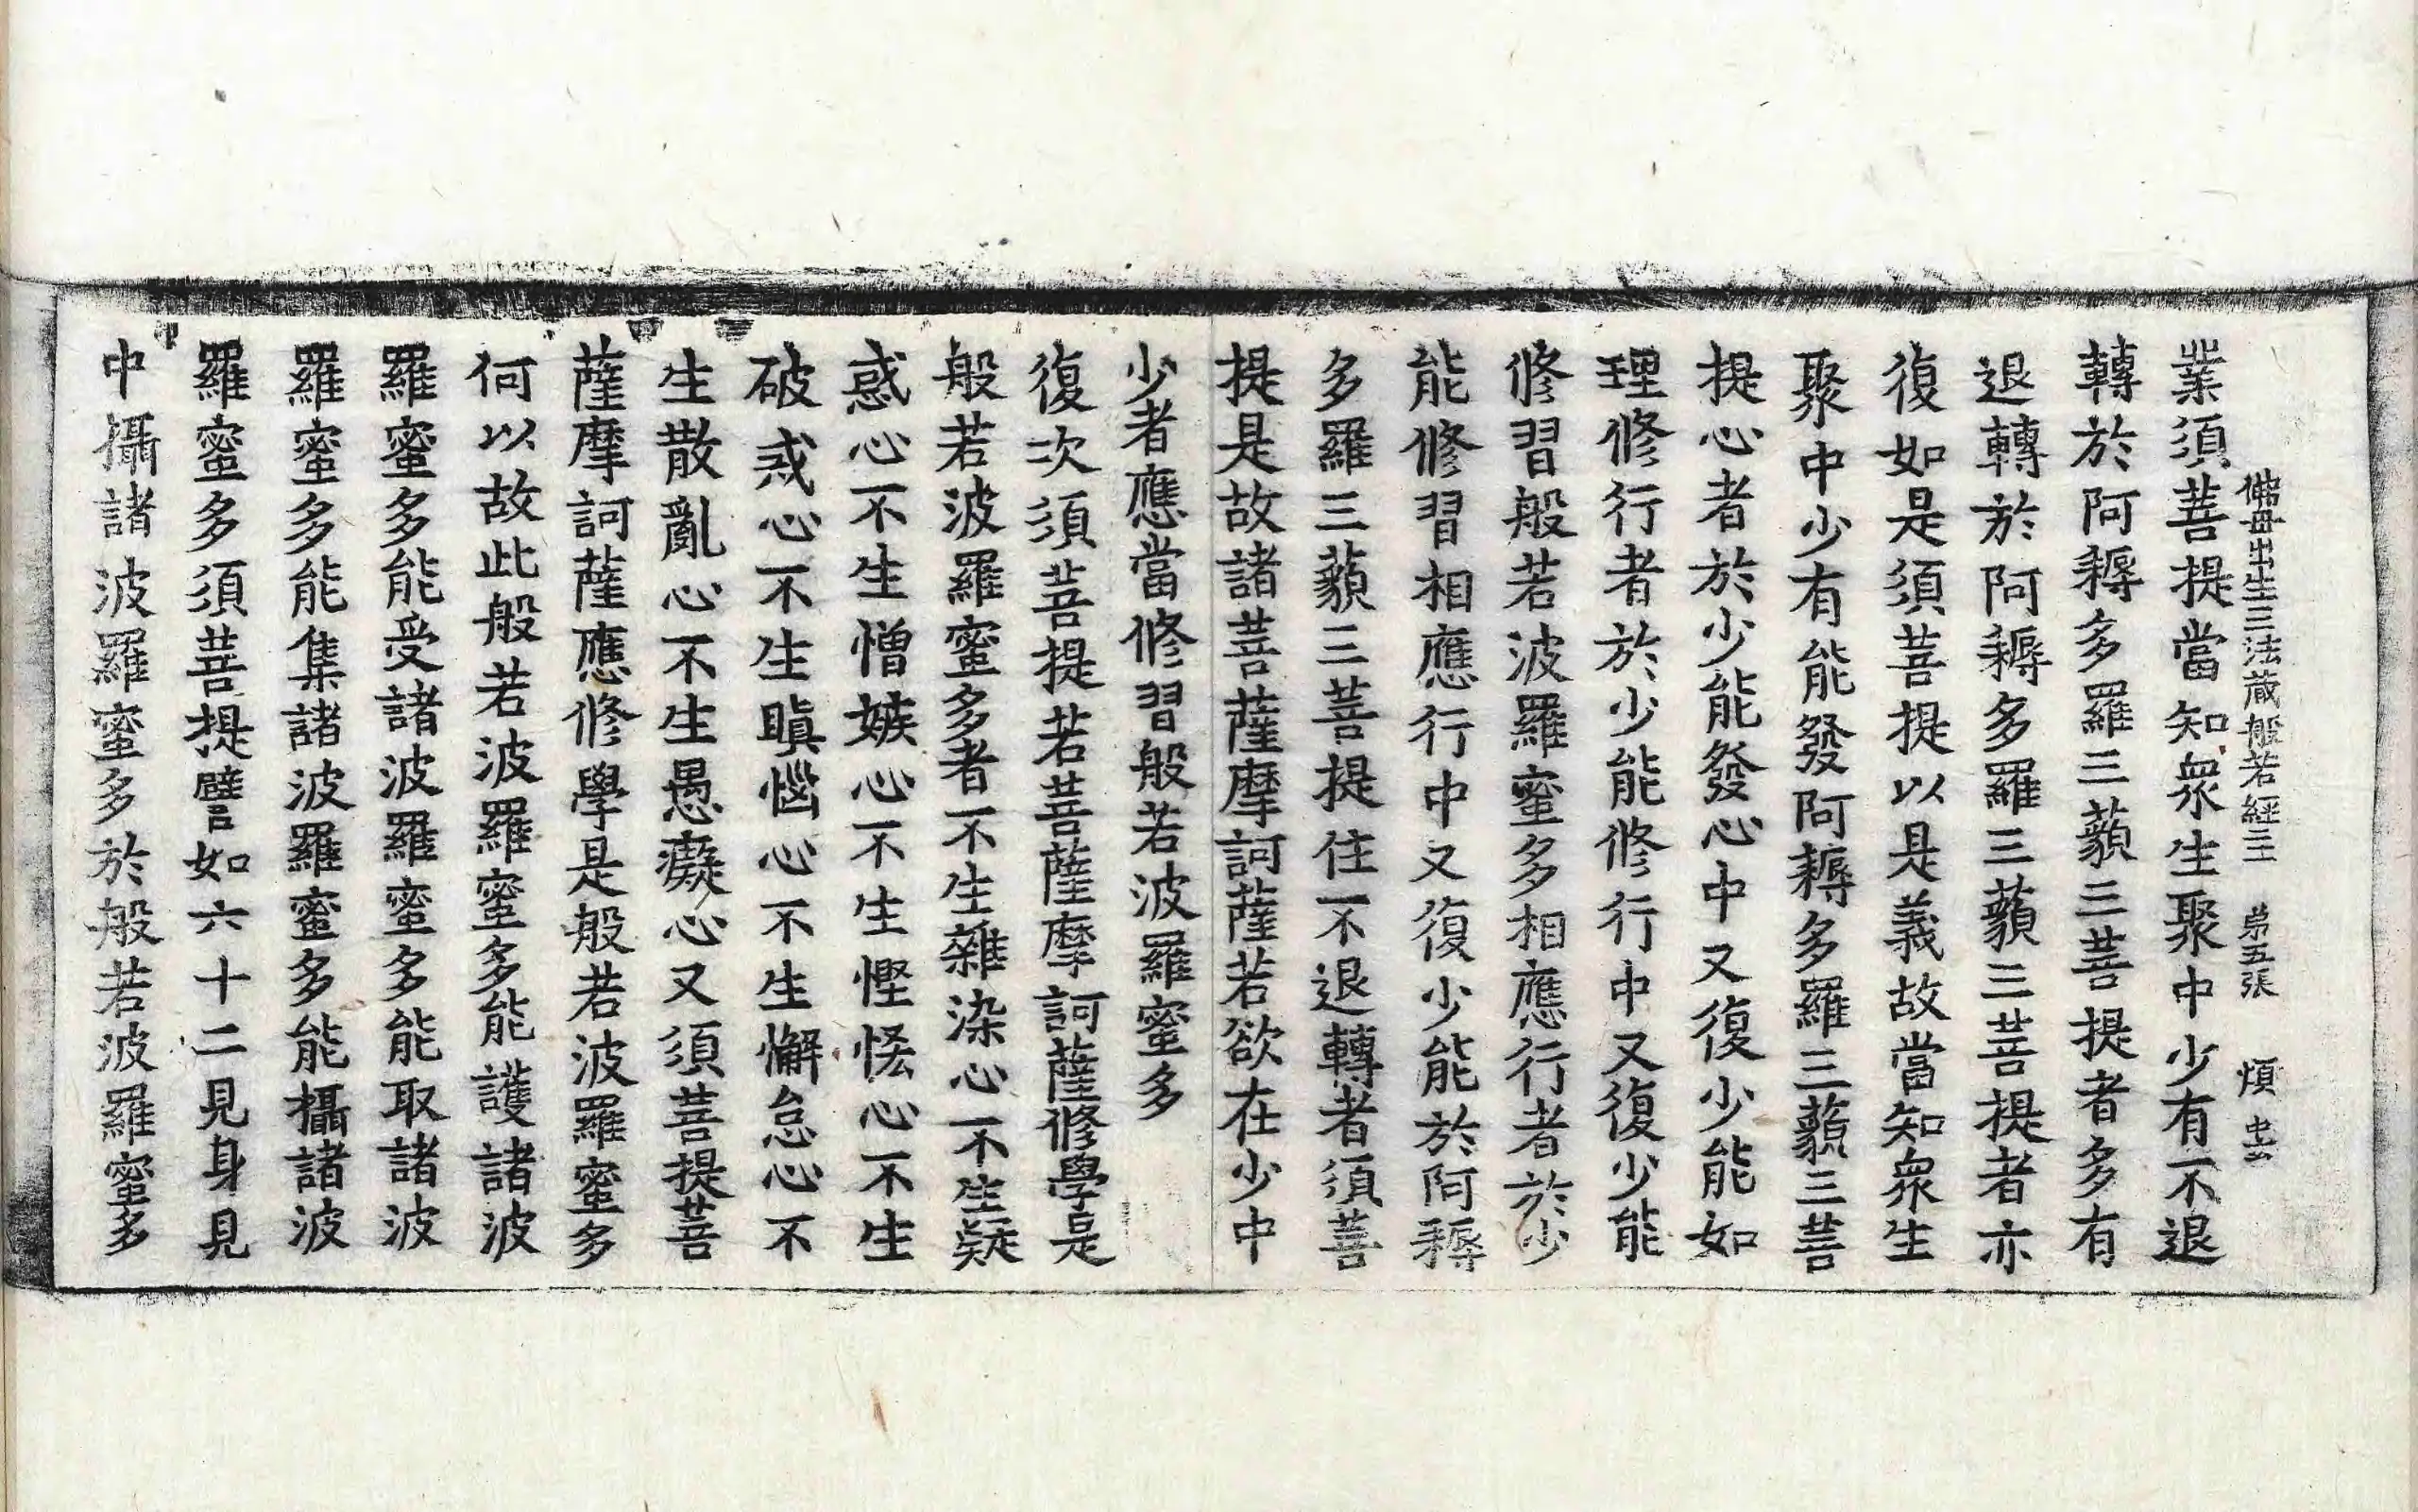 佛母出生三法藏般若經二十 第五張 煩
業須菩提當知衆生聚中少有不退
轉於阿耨多羅三藐三菩提者多有
退轉於阿耨多羅三藐三菩提者亦
復如是須菩提以是義故當知衆生
聚中少有能發阿耨多羅三藐三菩
提心者於少能發心中又復少能如
理修行者於少能修行中又復少能
修習般若波羅蜜多相應行者於少
能修習相應行中又復少能於阿耨
多羅三藐三菩提住不退轉者須菩
提是故諸菩薩摩訶薩若欲在少中
少者應當修習般若波羅蜜多
復次須菩提若菩薩摩訶薩修學是
般若波羅蜜多者不生雜染心不生疑
惑心不生憎嫉心不生慳悋心不生
破戒心不生瞋惱心不生懈怠心不
生散亂心不生愚癡心又須菩提菩
薩摩訶薩應修學是般若波羅蜜多
何以故此般若波羅蜜多能護諸波
羅蜜多能受諸波羅蜜多能取諸波
羅蜜多能集諸波羅蜜多能攝諸波
羅蜜多須菩提譬如六十二見身見
中攝諸波羅蜜多於般若波羅蜜多